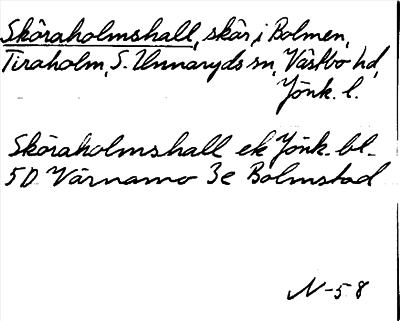 Sköraholmshall, skär i Bolmen,
Tiraholm, S. Unnaryds sn, Västbo hd,
Jönk. l.
Sköraholmshall ek Jönk. bl.
5D Värnamo 3e Bolmstad
N-58